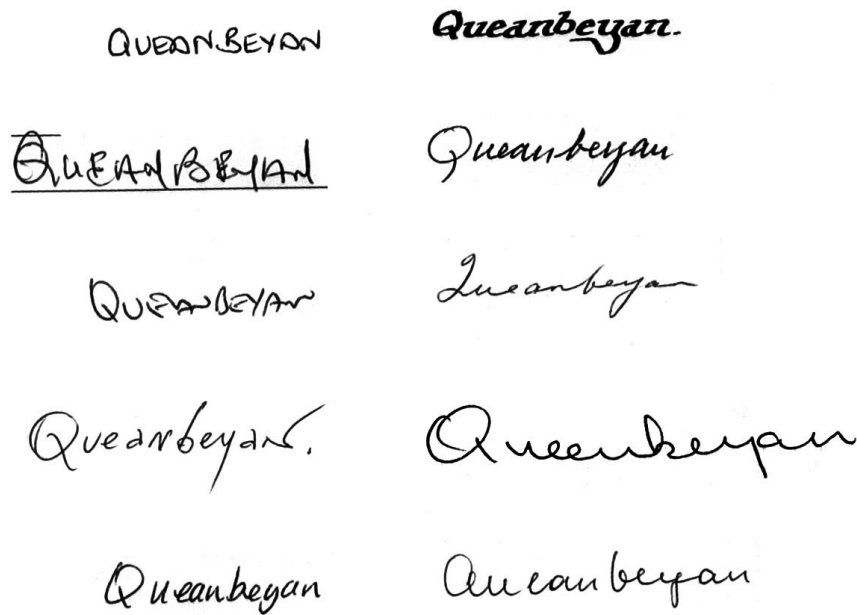 QUEANBEYAN Queanbeyan.
QUEANBEYAN Queanbeyan
QUEANBEYAN Queanbeyan
Queanbeyan. Queanbeyan
Queanbeyan Queanbeyan